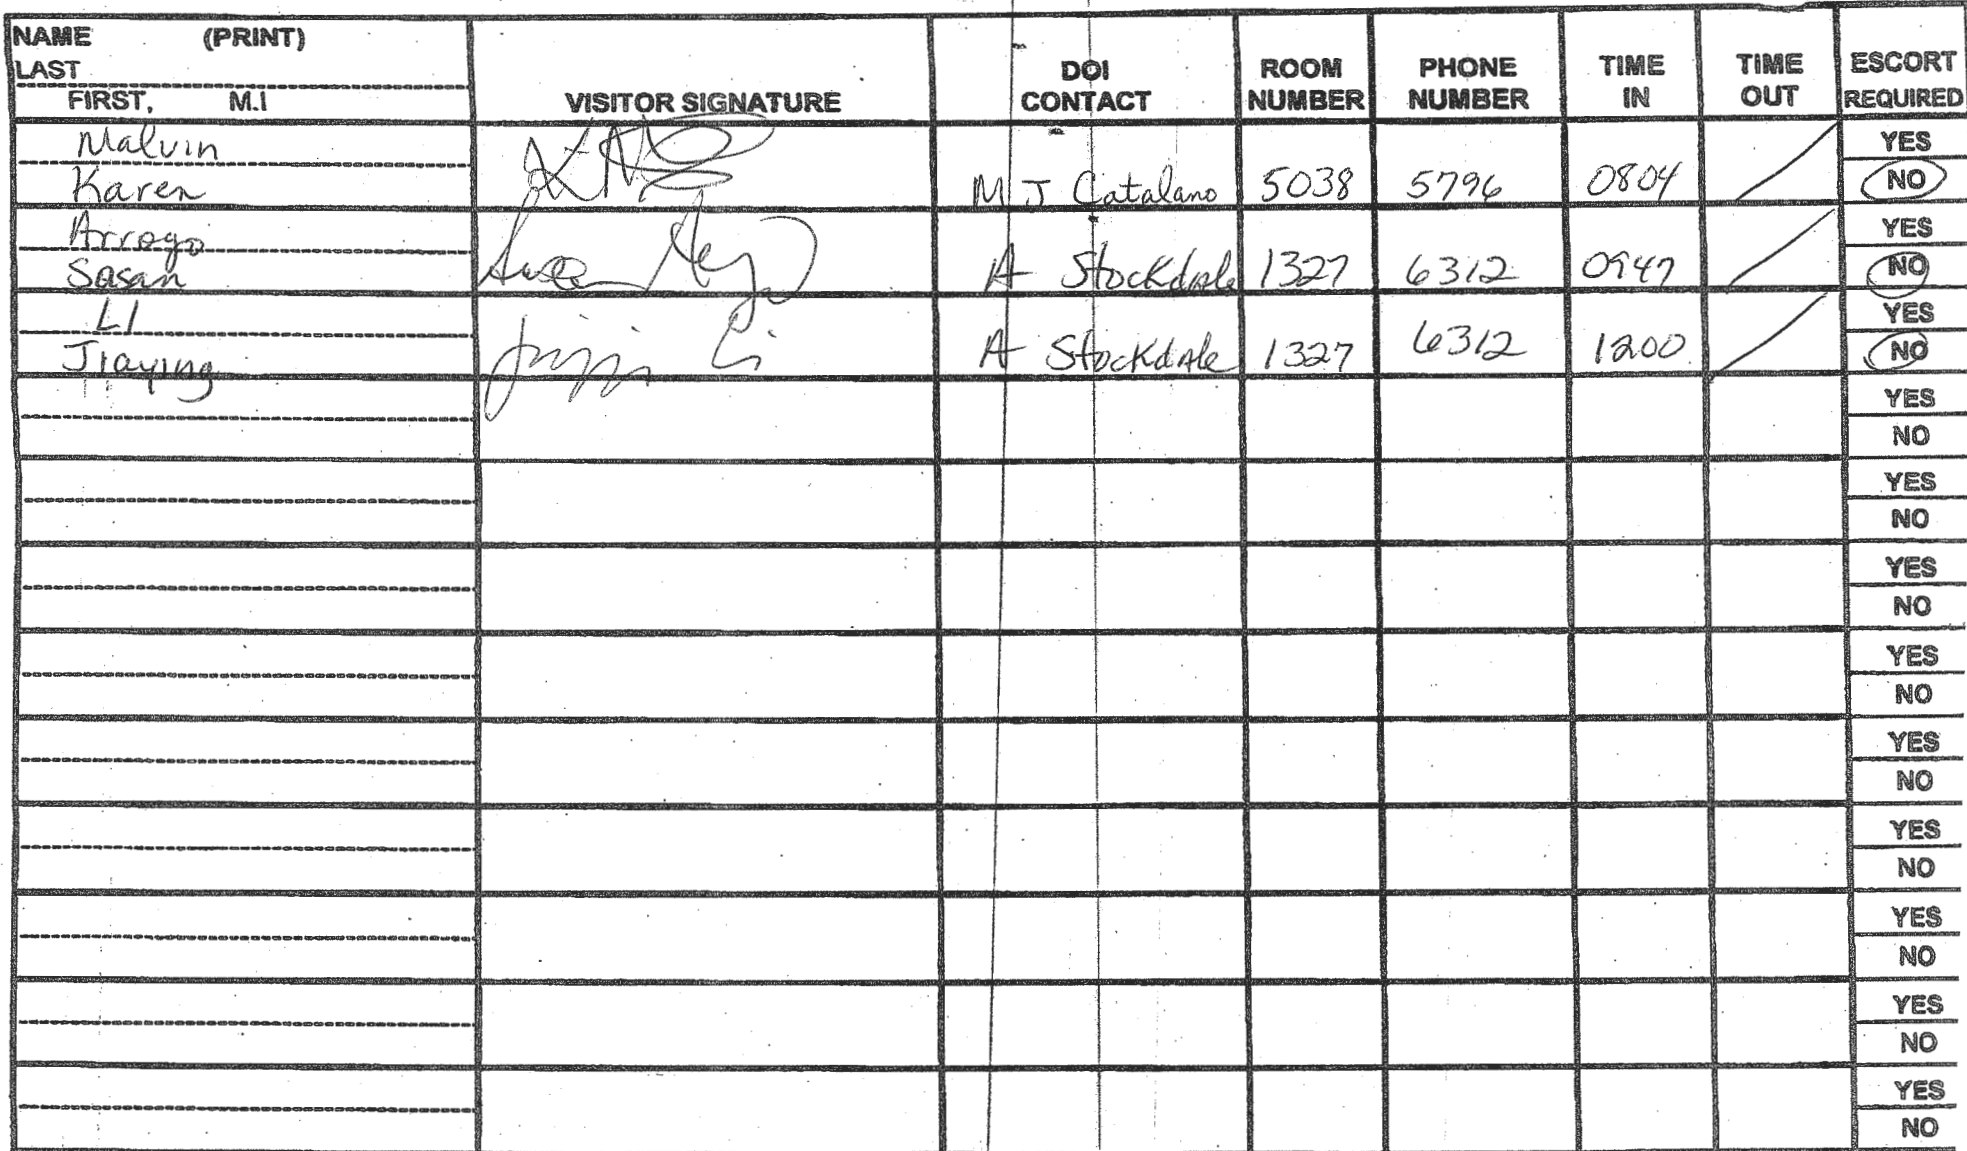 NAME (PRINT)
LAST
FIRST, M.I
VISITOR SIGNATURE
DOI CONTACT
ROOM NUMBER
PHONE NUMBER
TIME IN
TIME OUT
ESCORT REQUIRED
Malvin
Karen
M J Catalano 5038 5796 0804
YES
NO
Arroyo
Susan
A Stockdale 1327 6312 0947
YES
NO
LI
Jiaying
A Stockdale 1327 6312 1200
YES
NO
YES
NO
YES
NO
YES
NO
YES
NO
YES
NO
YES
NO
YES
NO
YES
NO
YES
NO